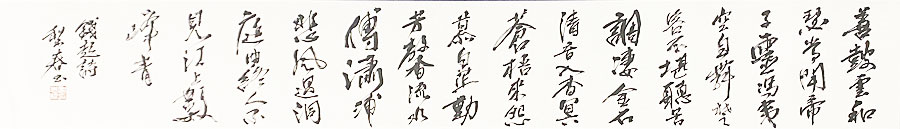 善鼓雲和
瑟常聞帝
子靈馮夷
空自舞楚
客不堪聽苦
調凄金石
清音入杳冥
蒼梧來怨
慕白芷動
芳馨流水
傳瀟浦
悲風過洞
庭曲終人不
見江上數
峰青
錢起詩
春书